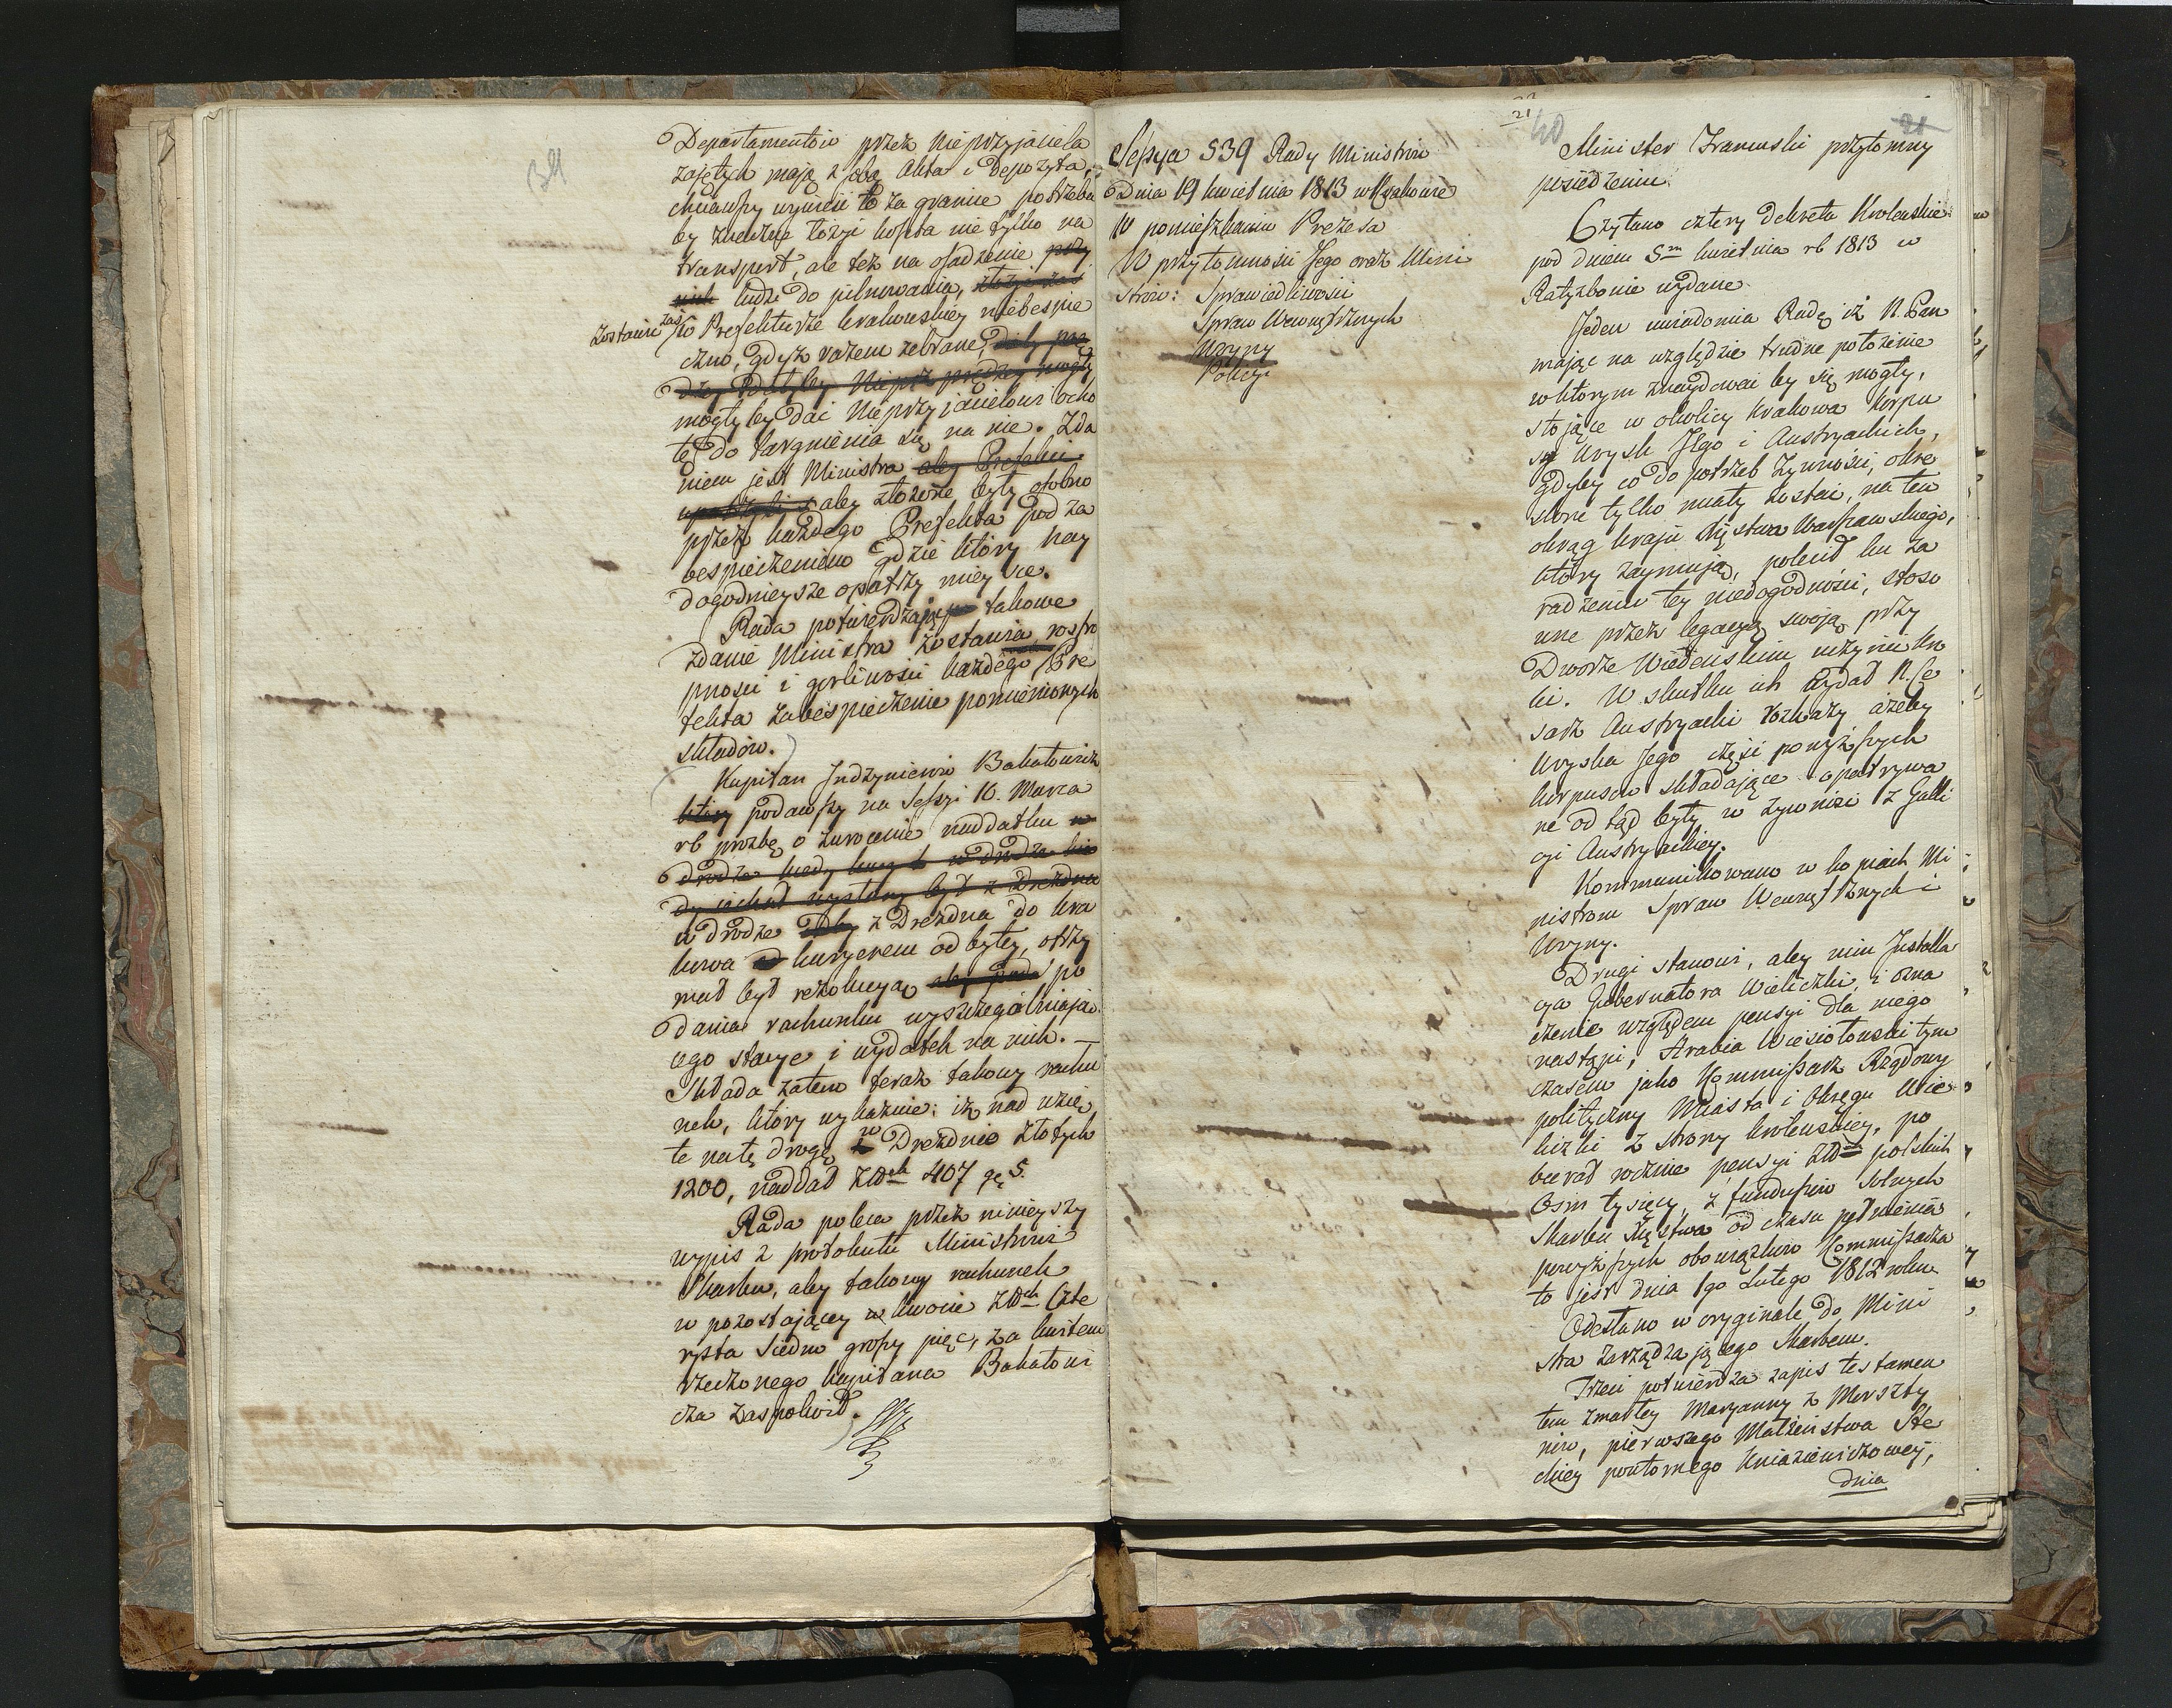 39
Departamentów przez Nieprzyjaciela
zajętych mają z sobą Akta i Depozyta;
chcąwszy wynieść to za granice potrzeba
by znaczne łożyć koszta nie tylko na
transport, ale też na osadzenie przy
nich ludzi do pilnowania,
zostawić zaś w Prefekturze krakowskiey niebespie
czno, gdyż razem zebrane,
mogłyby dać Nieprzyjacielowi ocho
tę do targnienia się na nie. Zda
niem jest Ministra aby Prefekci
aby złożone były osobno
przez każdego Prefekta pod za
bespieczeniem gdzie który nay
dogodnieysze opatrzy mieysce.
Rada potwierdzając takowe
zdanie Ministra zostawia rostro
pności i gorliwości każdego Pre
fekta zabespieczenie pomienionych
składów.
Kapitan Indzynierów Bakałowicz
który podawszy na Sessyi 16. Marca
rb prozbę o zwrocenie naddatku w
drodze kiedy
był z Drezdna
w drodze z Drezdna do Kra
kowa kuryerem odbytey, otrzy
mał był rezolucyą po
dania rachunku wyszczegolniają
cego stacye i wydatek na nich. —
Składa zatem teraz takowy rachu
nek, który wykazuie: iż nad wzię
te na tę drogę w Dreznie złotych
1200, naddał Złch 407 gr 5.
Rada poleca przez ninieyszy
wypis z protokułu Ministrowi
Skarbu, aby takowy rachunek
w pozostającey w kwocie Złch Czte
rysta Siedm groszy pięć, za kwitem
rzeczonego Kapitana Bakałowi
cza zaspokoił.
21
40
21
Sessya 539 Rady Ministrów
Dnia 19 kwietnia 1813 w Krakowie
W pomieszkaniu Prezesa
W przytomności Jego oraz Mini
strów: Sprawiedliwości
Spraw Wewnętrznych
Woyny
Policyi
Minister przytomny
posiedzeniu.
Czytano cztery Dekreta Krolewskie
pod dniem 5m kwietnia rb 1813 w
Ratyzbonie wydane.
Jeden uwiadomia Radę iż N. Pan
mając na względzie trudne położenie
w ktorym znaydować by się mogły,
stojące w okolicy Krakowa korpu
sy woysk Jego i Austryackich,
gdyby co do potrzeb żywności, okre
slone tylko miały zostać, na ten
okrąg kraju Xięstwa Warszawskiego,
który zaymują, polecił ku za
radzeniu tey niedogodności, stoso
wne przez legacyą swoją przy
Dworze Wiedenskim uczynić kro
ki. W skutku ich wydał N. Ce
sarz Austryacki rozkazy ażeby
woyska Jego część powyższych
korpusów składające opatrywa
ne odtąd były w żywność z Galli
cyi Austryackiey.
Kommunikowano w kopiach Mi
nistrom Spraw Wewnętrznych i
Woyny.
Drugi stanowi, aby nim Installa
cya Gubernatora Wieliczki, i ozna
czenie względem pensyi dla niego
nastąpi, Hrabia Wiesiołowski tym
czasem jako Kommissarz Rządowy
polityczny Miasta i Okręgu Wie
liczki z strony krolewskiey, po
bierał rocznie pensyi Złch polskich
Osm tysięcy, z funduszów solnych
Skarbu Xięstwa od czasu pełnienia
powyższych obowiązków Kommissarza
to jest dnia 1go Lutego 1812 roku
Odesłano w oryginale do Mini
stra zarządzającego Skarbem.
Trzeci potwierdza zapis testamen
tem zmarłey Maryanny z Morszty
nów, pierwszego Małżeństwa Ste
ckiey powtornego Kniaziewiczowey,
dnia